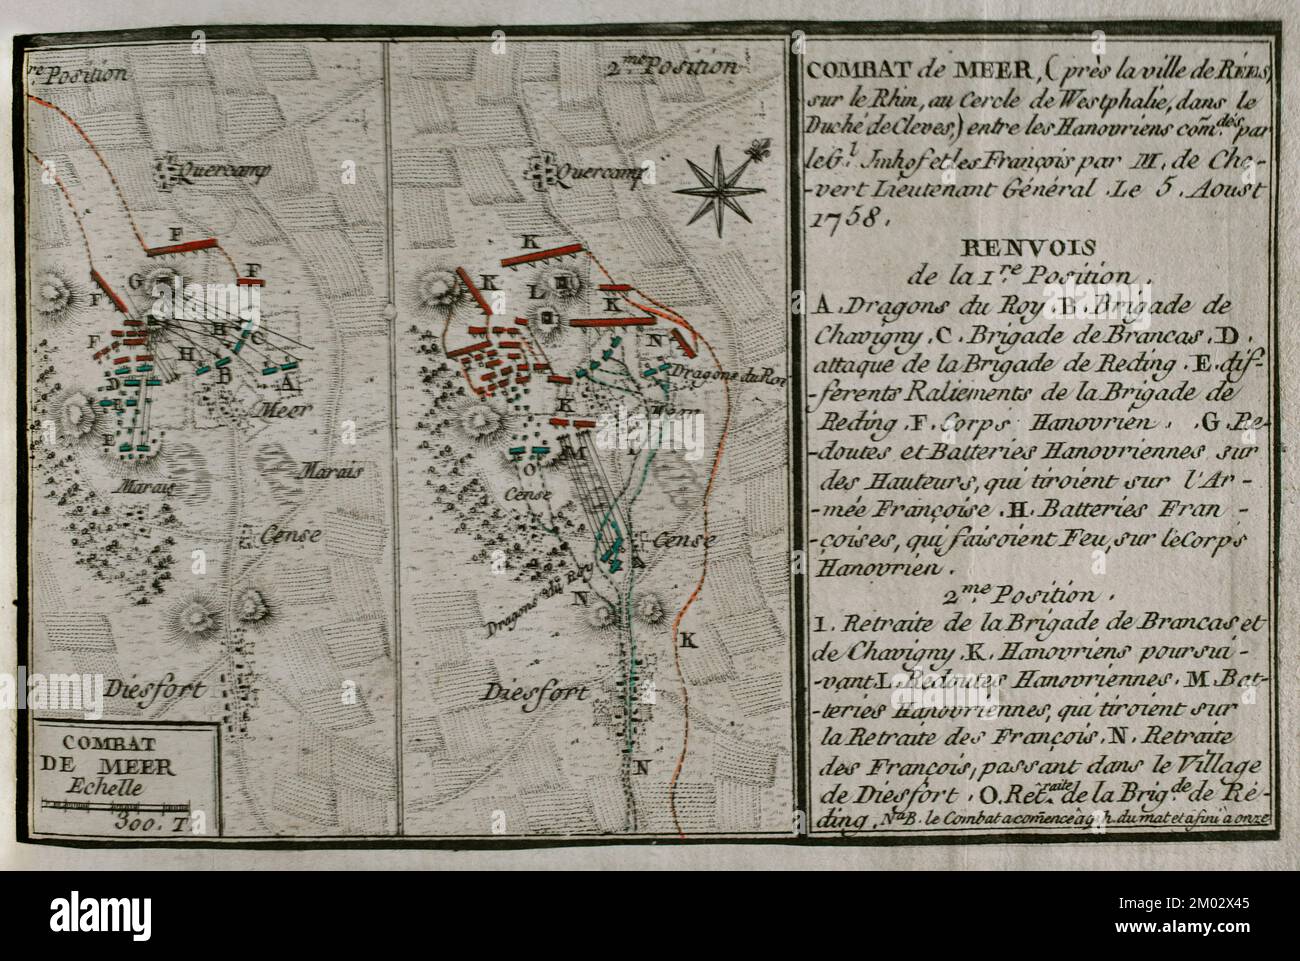 re Position
Quercamp
F
F
G
F
F
H
C
H
D
B
A
Meer
E
Marais
Marais
Cense
Diesfort
COMBAT
DE MEER
Echelle
300. T.
2.me Position
Quercamp
K
K
L
K
N
Dragons du Roy
Meer
K
M
O
Cense
Cense
Dragons du Roy
N
K
Diesfort
N
COMBAT de MEER, (près la ville de REES,
sur le Rhin, au Cercle de Westphalie, dans le
Duché de Cleves,) entre les Hanovriens com̃.dés par
le G.l Imhof et les François par M. de Che-
-vert Lieutenant Général. Le 5. Aoust
1758.
RENVOIS
de la 1.re Position.
A. Dragons du Roy. B. Brigade de
Chavigny. C. Brigade de Brancas. D.
attaque de la Brigade de Reding. E. dif-
-ferents Raliements de la Brigade de
Reding. F. Corps Hanovrien. G. Re-
-doutes et Batteries Hanovriennes sur
des Hauteurs, qui tiroient sur l'Ar-
-mée Françoise. H. Batteries Fran-
-çoises, qui faisoient Feu, sur le Corps
Hanovrien.
2.me Position.
I. Retraite de la Brigade de Brancas et
de Chavigny. K. Hanovriens poursui-
-vant. L. Redoutes Hanovriennes. M. Bat-
-teries Hanovriennes, qui tiroient sur
la Retraite des François. N. Retraite
des François, passant dans le Village
de Diesfort. O. Ret.raite de la Brig.de de Ré-
ding. N.a B. le Combat a com̃encé à 9 h. du mat et a fini à onze
alamy
Image ID: 2M02X45
www.alamy.com